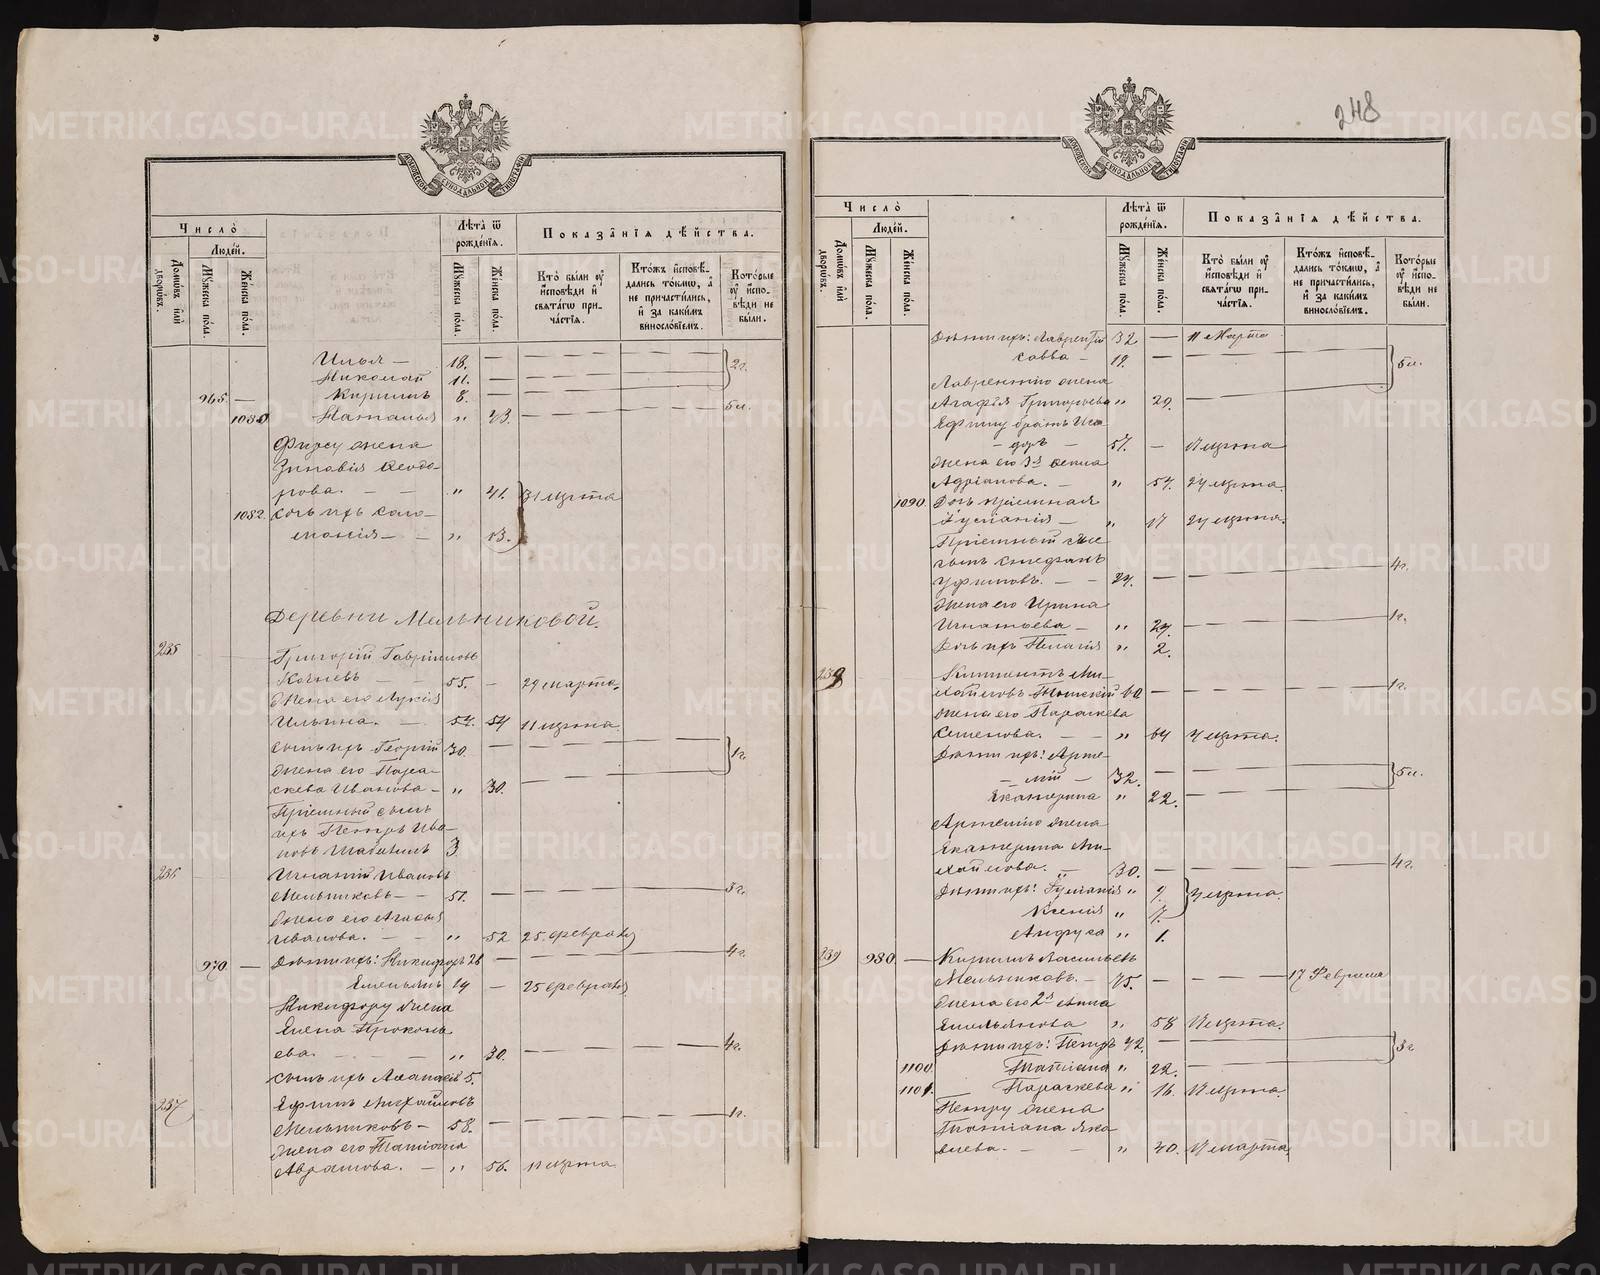 248
Число̀
Люде́й.
Домѡ́въ и҆лѝ дворѡ́въ.
Мꙋ́жеска по́ла.
Же́нска по́ла.
Лѣ́та ѿ рожде́нїѧ.
Мꙋ́жеска по́ла.
Же́нска по́ла.
Показа̑нїѧ дѣ́йства.
Кто̀ бы́ли оу҆ и҆́сповѣди и҆ свѧта́гѡ при-ча́стїѧ.
Кто́жъ и҆сповѣ́-дались то́кмѡ, а҆ не причасти́лись, и҆ за каки́мъ винослові́емъ.
Кото́рые оу҆ и҆́спо-вѣди не бы́ли.
Илья — 18. — — — — 2г.
Николай 11. — — — —
965. — Кириллъ 8. — — — — 5л.
1080 Наталья " 23. — — — —
Фирсу жена
Зиновія Ѳеодо-
рова. — — " 41. 31 марта
1082. Дочь ихъ Соло-
монія — — " 13.
Деревни Мельниковой.
235 Григорій Гавриловъ
Качневъ — — 55. — 29 марта.
Жена его Лукія
Ильина. — 54. 54 11 марта
Сынъ ихъ Георгій 30. — — — — 1г.
Жена его Пара-
скева Иванова — " 30. — — —
Пріемный сынъ
ихъ Петръ Ива-
новъ 3
236 Игнатій Ивановъ
Мельниковъ — — 51. — — — — 3г.
Жена его Агафья
Иванова. — — " 52 25 февраля
970 — Дѣти ихъ: Никифоръ 28 — — — — 4г.
Емельянъ 19 — 25 февраля
Никифору жена
Елена Прокопь-
ева. — — " 30. — — — 4г.
Сынъ ихъ Аѳанасій 5.
237 Ефимъ Михайловъ
Мельниковъ — 58. — — — — 1г.
Жена его Татіана
Аврамова. — " 56. 11 марта
Число̀
Люде́й.
Домѡ́въ и҆лѝ дворѡ́въ.
Мꙋ́жеска по́ла.
Же́нска по́ла.
Лѣ́та ѿ рожде́нїѧ.
Мꙋ́жеска по́ла.
Же́нска по́ла.
Показа̑нїѧ дѣ́йства.
Кто̀ бы́ли оу҆ и҆́сповѣди и҆ свѧта́гѡ при-ча́стїѧ.
Кто́жъ и҆сповѣ́-дались то́кмѡ, а҆ не причасти́лись, и҆ за каки́мъ винослові́емъ.
Кото́рые оу҆ и҆́спо-вѣди не бы́ли.
Дѣти ихъ: Лаврентій 32 — 11 марта
Савва — 19. — — — — 5л.
Лаврентію жена
Агафія Григорьева " 29. — — —
Ефиму братъ Иси-
— доръ — 57. — 11 марта
Жена его 3я Анна
Адріанова. — " 54. 24 марта.
1090. Дочь пріемная
Іуліанія — " 17 24 марта.
Пріемный
сынъ Стефанъ
— — 24. — — — — 4г.
Жена его Ирина
Игнатьева — " 24. — — — 1г.
Дочь ихъ Пелагія " 2.
238 Климентъ Ми-
хайловъ 60 — — — — 1г.
Жена его Параскева
Семенова. — — " 64 4 марта.
Дѣти ихъ: Арте-
— мій — 32. — — — — 5л.
Екатерина " 22. — — —
Артемію жена
Екатерина Ми-
хайлова. " 30. — — — 4г.
Дѣти ихъ: Іуліанія " 9. 3 марта.
Ксенія " 7.
Анфуса " 1.
239 980. — Кириллъ Васильевъ
Мельниковъ. — 75. — — 17 Февраля
Жена его 2я Анна
Емельянова " 58 11 марта.
Дѣти ихъ: Петръ 42. — — — — 3г
1100. Татіана " 22. — — —
1101. Параскева " 16. 11 марта.
Петру жена
Татіана Яко-
влева. — — " 40. 11 марта